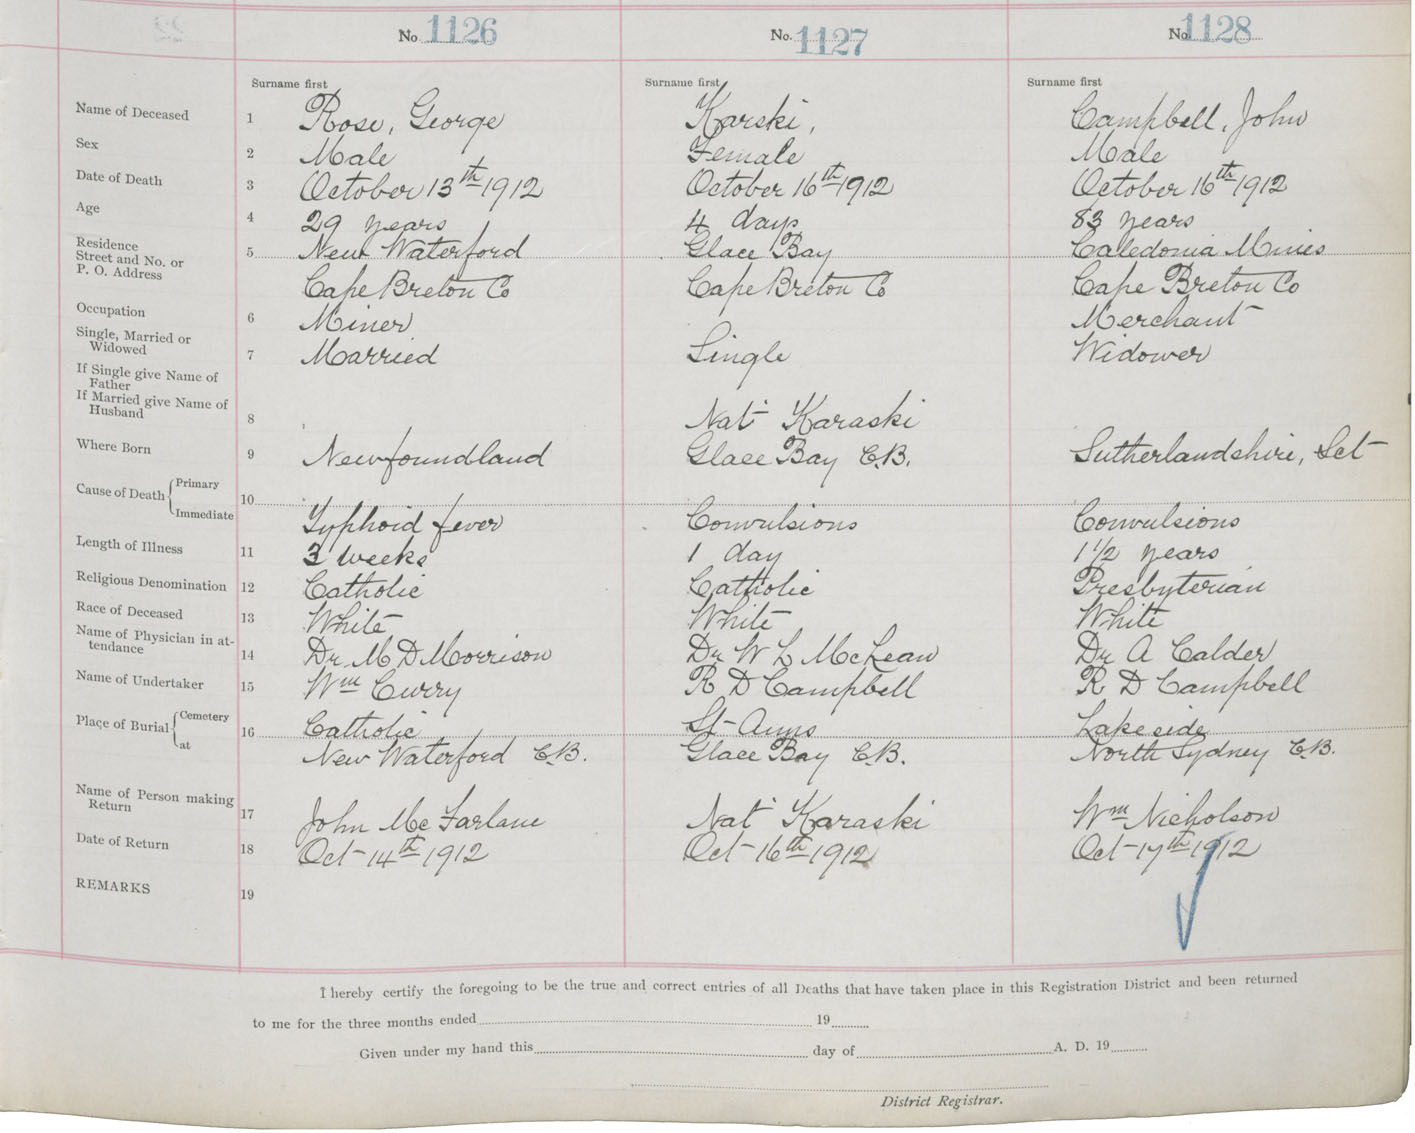 No. 1126 No. 1127 No. 1128
Surname first Surname first Surname first
Name of Deceased 1 Rose, George Karski, Campbell, John
Sex 2 Male Female Male
Date of Death 3 October 13th 1912 October 16th 1912 October 16th 1912
Age 4 29 years 4 days 83 years
Residence
Street and No. or 5 New Waterford Glace Bay Caledonia Mines
P. O. Address
Cape Breton Co Cape Breton Co Cape Breton Co
Occupation 6 Miner Merchant
Single, Married or
Widowed 7 Married Single Widower
If Single give Name of
Father
If Married give Name of
Husband 8 Nat Karaski
Where Born 9 Newfoundland Glace Bay C.B. Sutherlandshire, Sct
Cause of Death Primary 10
Immediate Typhoid fever Convulsions Convulsions
Length of Illness 11 3 weeks 1 day 1 1/2 years
Religious Denomination 12 Catholic Catholic Presbyterian
Race of Deceased 13 White White White
Name of Physician in at-
tendance 14 Dr M D Morrison Dr W L McLean Dr A Calder
Name of Undertaker 15 Wm Curry R D Campbell R D Campbell
Place of Burial Cemetery 16 Catholic St Anns Lakeside
at New Waterford C.B. Glace Bay C.B. North Sydney C.B.
Name of Person making
Return 17 John Mc Farlane Nat Karaski Wm Nicholson
Date of Return 18 Oct 14th 1912 Oct 16th 1912 Oct 17th 1912
REMARKS 19
I hereby certify the foregoing to be the true and correct entries of all Deaths that have taken place in this Registration District and been returned
to me for the three months ended 19
Given under my hand this day of A. D. 19
District Registrar.